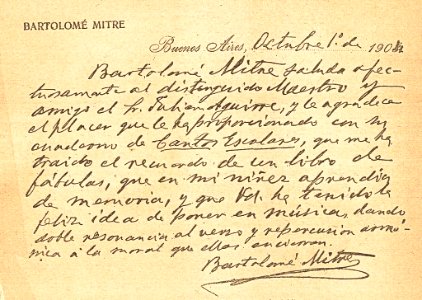 BARTOLOMÉ MITRE
Buenos Aires, Octubre 1º de 1904
Bartolomé Mitre saluda afec-
tuosamente al distinguido Maestro y
amigo el Sr. Julian Aguirre, y le agradece
el placer que le ha proporcionado con su
cuaderno de Cantos Escolares, que me ha
traido el recuerdo de un libro de
fábulas, que en mi niñez aprendi
de memoria, y que Vd. ha tenido la
feliz idea de poner en música, dando
doble resonancia al verso y repercusion armó-
nica á la moral que ellas encierran.
Bartolomé Mitre